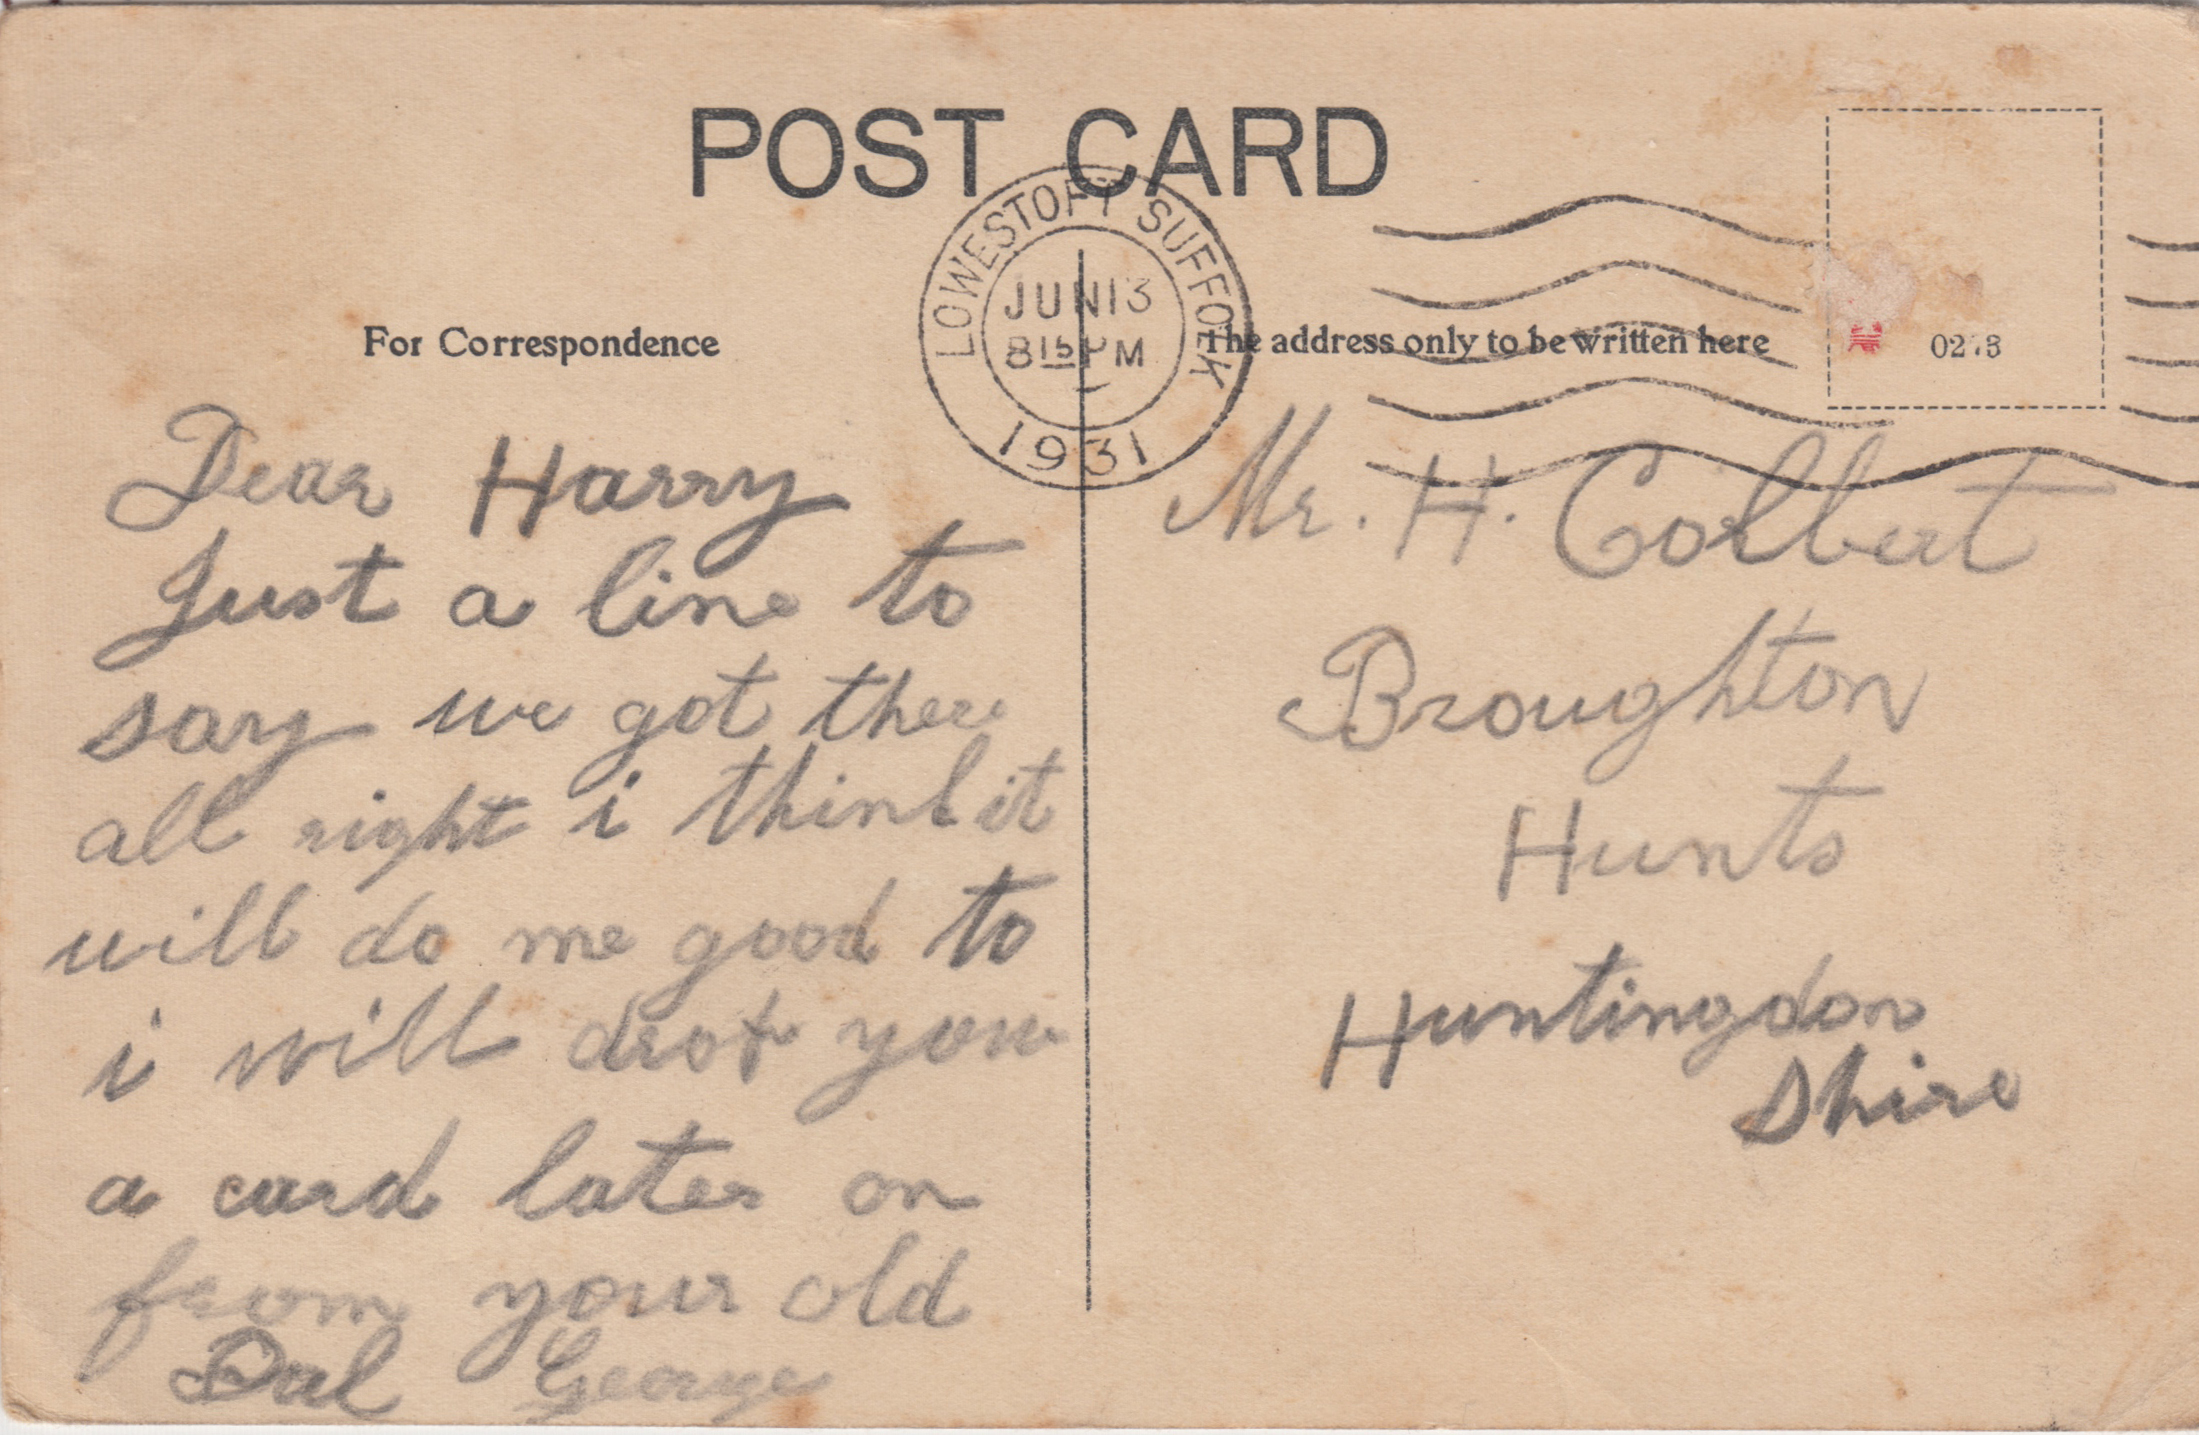 POST CARD
LOWESTOFT SUFFOLK
JUN 13
8 15 PM
1931
For Correspondence
The address only to be written here
Dear Harry
Just a line to
say we got there
all right i think it
will do me good to
i will drop you
a card later on
from your old
Pal George
Mr. H. Colbert
Broughton
Hunts
Huntingdon
Shire